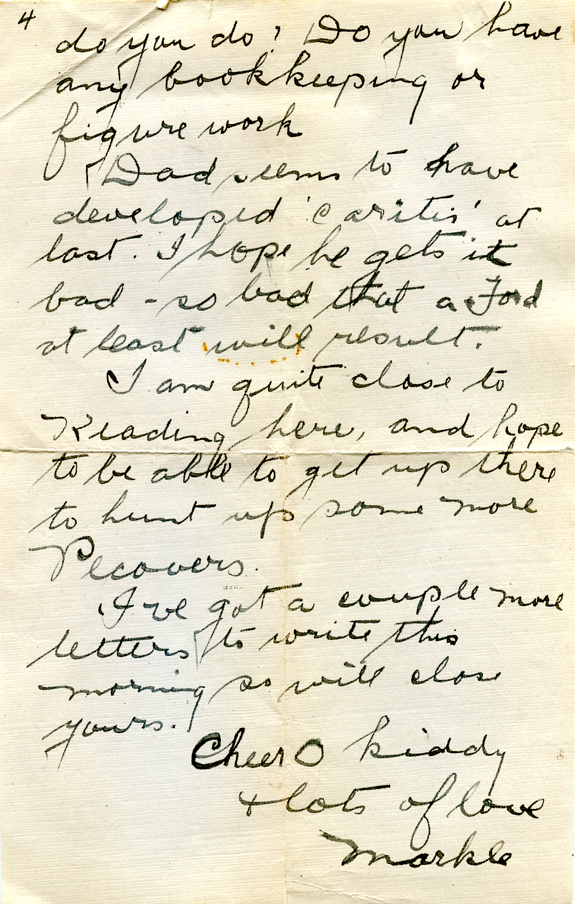 4
do you do? Do you have
any bookkeeping or
figure work
Dad seems to have
developed 'caritis' at
last. I hope he gets it
bad - so bad that a Ford
at least will result.
I am quite close to
Reading here, and hope
to be able to get up there
to hunt up some more
Pecovers.
I've got a couple more
letters to write this
morning so will close
yours.
CheerO kiddy
& lots of love
Markle